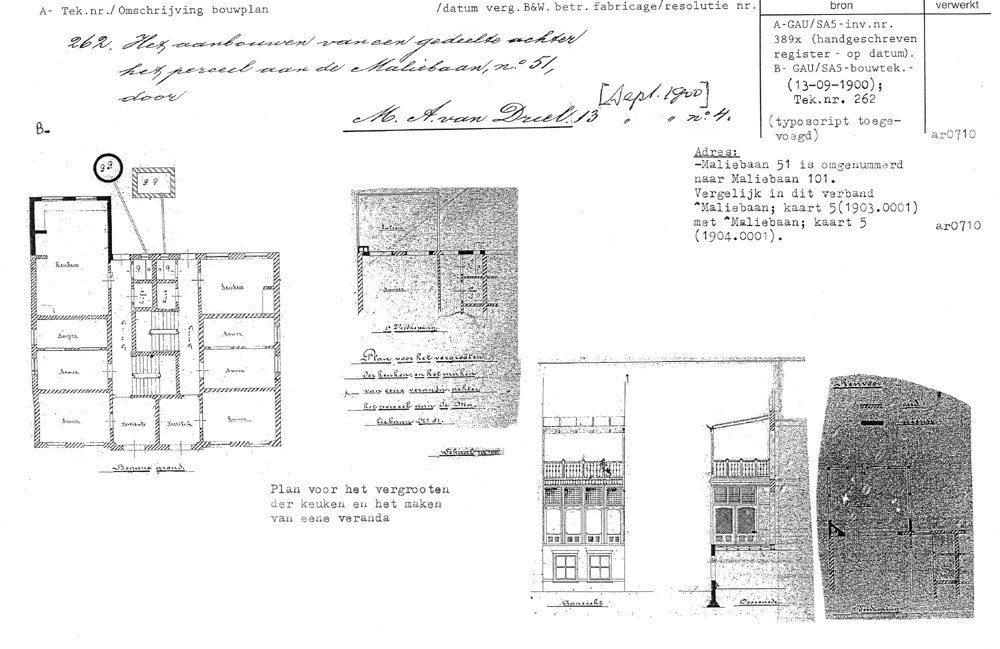 A- Tek.nr./Omschrijving bouwplan
/datum verg.B&W. betr. fabricage/resolutie nr.
bron
verwerkt
262. Het aanbouwen van een gedeelte achter
het perceel aan de Maliebaan, nº 51,
door
[Sept. 1900]
M. A. van Driel. 13 " " nº 4.
A-GAU/SA5-inv.nr.
389x (handgeschreven
register - op datum).
B- GAU/SA5-bouwtek.-
(13-09-1900);
Tek.nr. 262
(typoscript toege-
voegd)
ar0710
B-
Adres:
-Maliebaan 51 is omgenummerd
naar Maliebaan 101.
Vergelijk in dit verband
^Maliebaan; kaart 5(1903.0001)
met ^Maliebaan; kaart 5
(1904.0001).
ar0710
Keuken
Keuken
Kamer
Kamer
Kamer
Kamer
Kamer
Kamer
Vestibule
Vestibule
Begane grond
1e Verdieping
Plan voor het vergrooten
der keuken, en het maken
van eene veranda, achter
het perceel aan de Ma-
liebaan Nº 51.
Plan voor het vergrooten
der keuken en het maken
van eene veranda
Aanzicht
Doorsnede